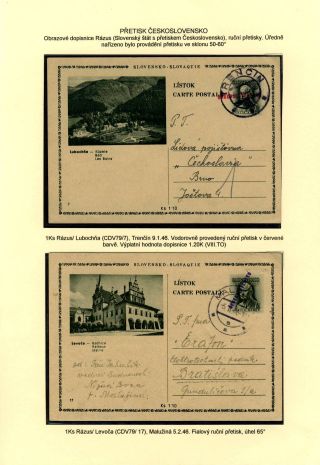 PŘETISK ČESKOSLOVENSKO
Obrazové dopisnice Rázus (Slovenský štát s přetiskem Československo), ruční přetisky. Úředně
nařízeno bylo provádění přetisku ve sklonu 50-60°
SLOVENSKO - SLOVAQUIE
LÍSTOK
CARTE POSTALE
TRENČÍN
P. T.
Lidová pojišťovna
"Čechoslavia"
Brno
Joštova
Ľubochňa - Kúpele
Bad
Les Bains
7
Ks 1'10
1Ks Rázus/ Lubochňa (CDV79/7), Trenčín 9.1.46. Vodorovně provedený ruční přetisk v červené
barvě. Výplatní hodnota dopisnice 1.20K (VIII.TO)
SLOVENSKO - SLOVAQUIE
LÍSTOK
CARTE POSTALE
P. T. firma
"Erafon"
Bratislava
Levoča - Radnica
Rathaus
Mairie
17
Ks 1'10
1Ks Rázus/ Levoča (CDV79/ 17), Malužiná 5.2.46. Fialový ruční přetisk, úhel 65°